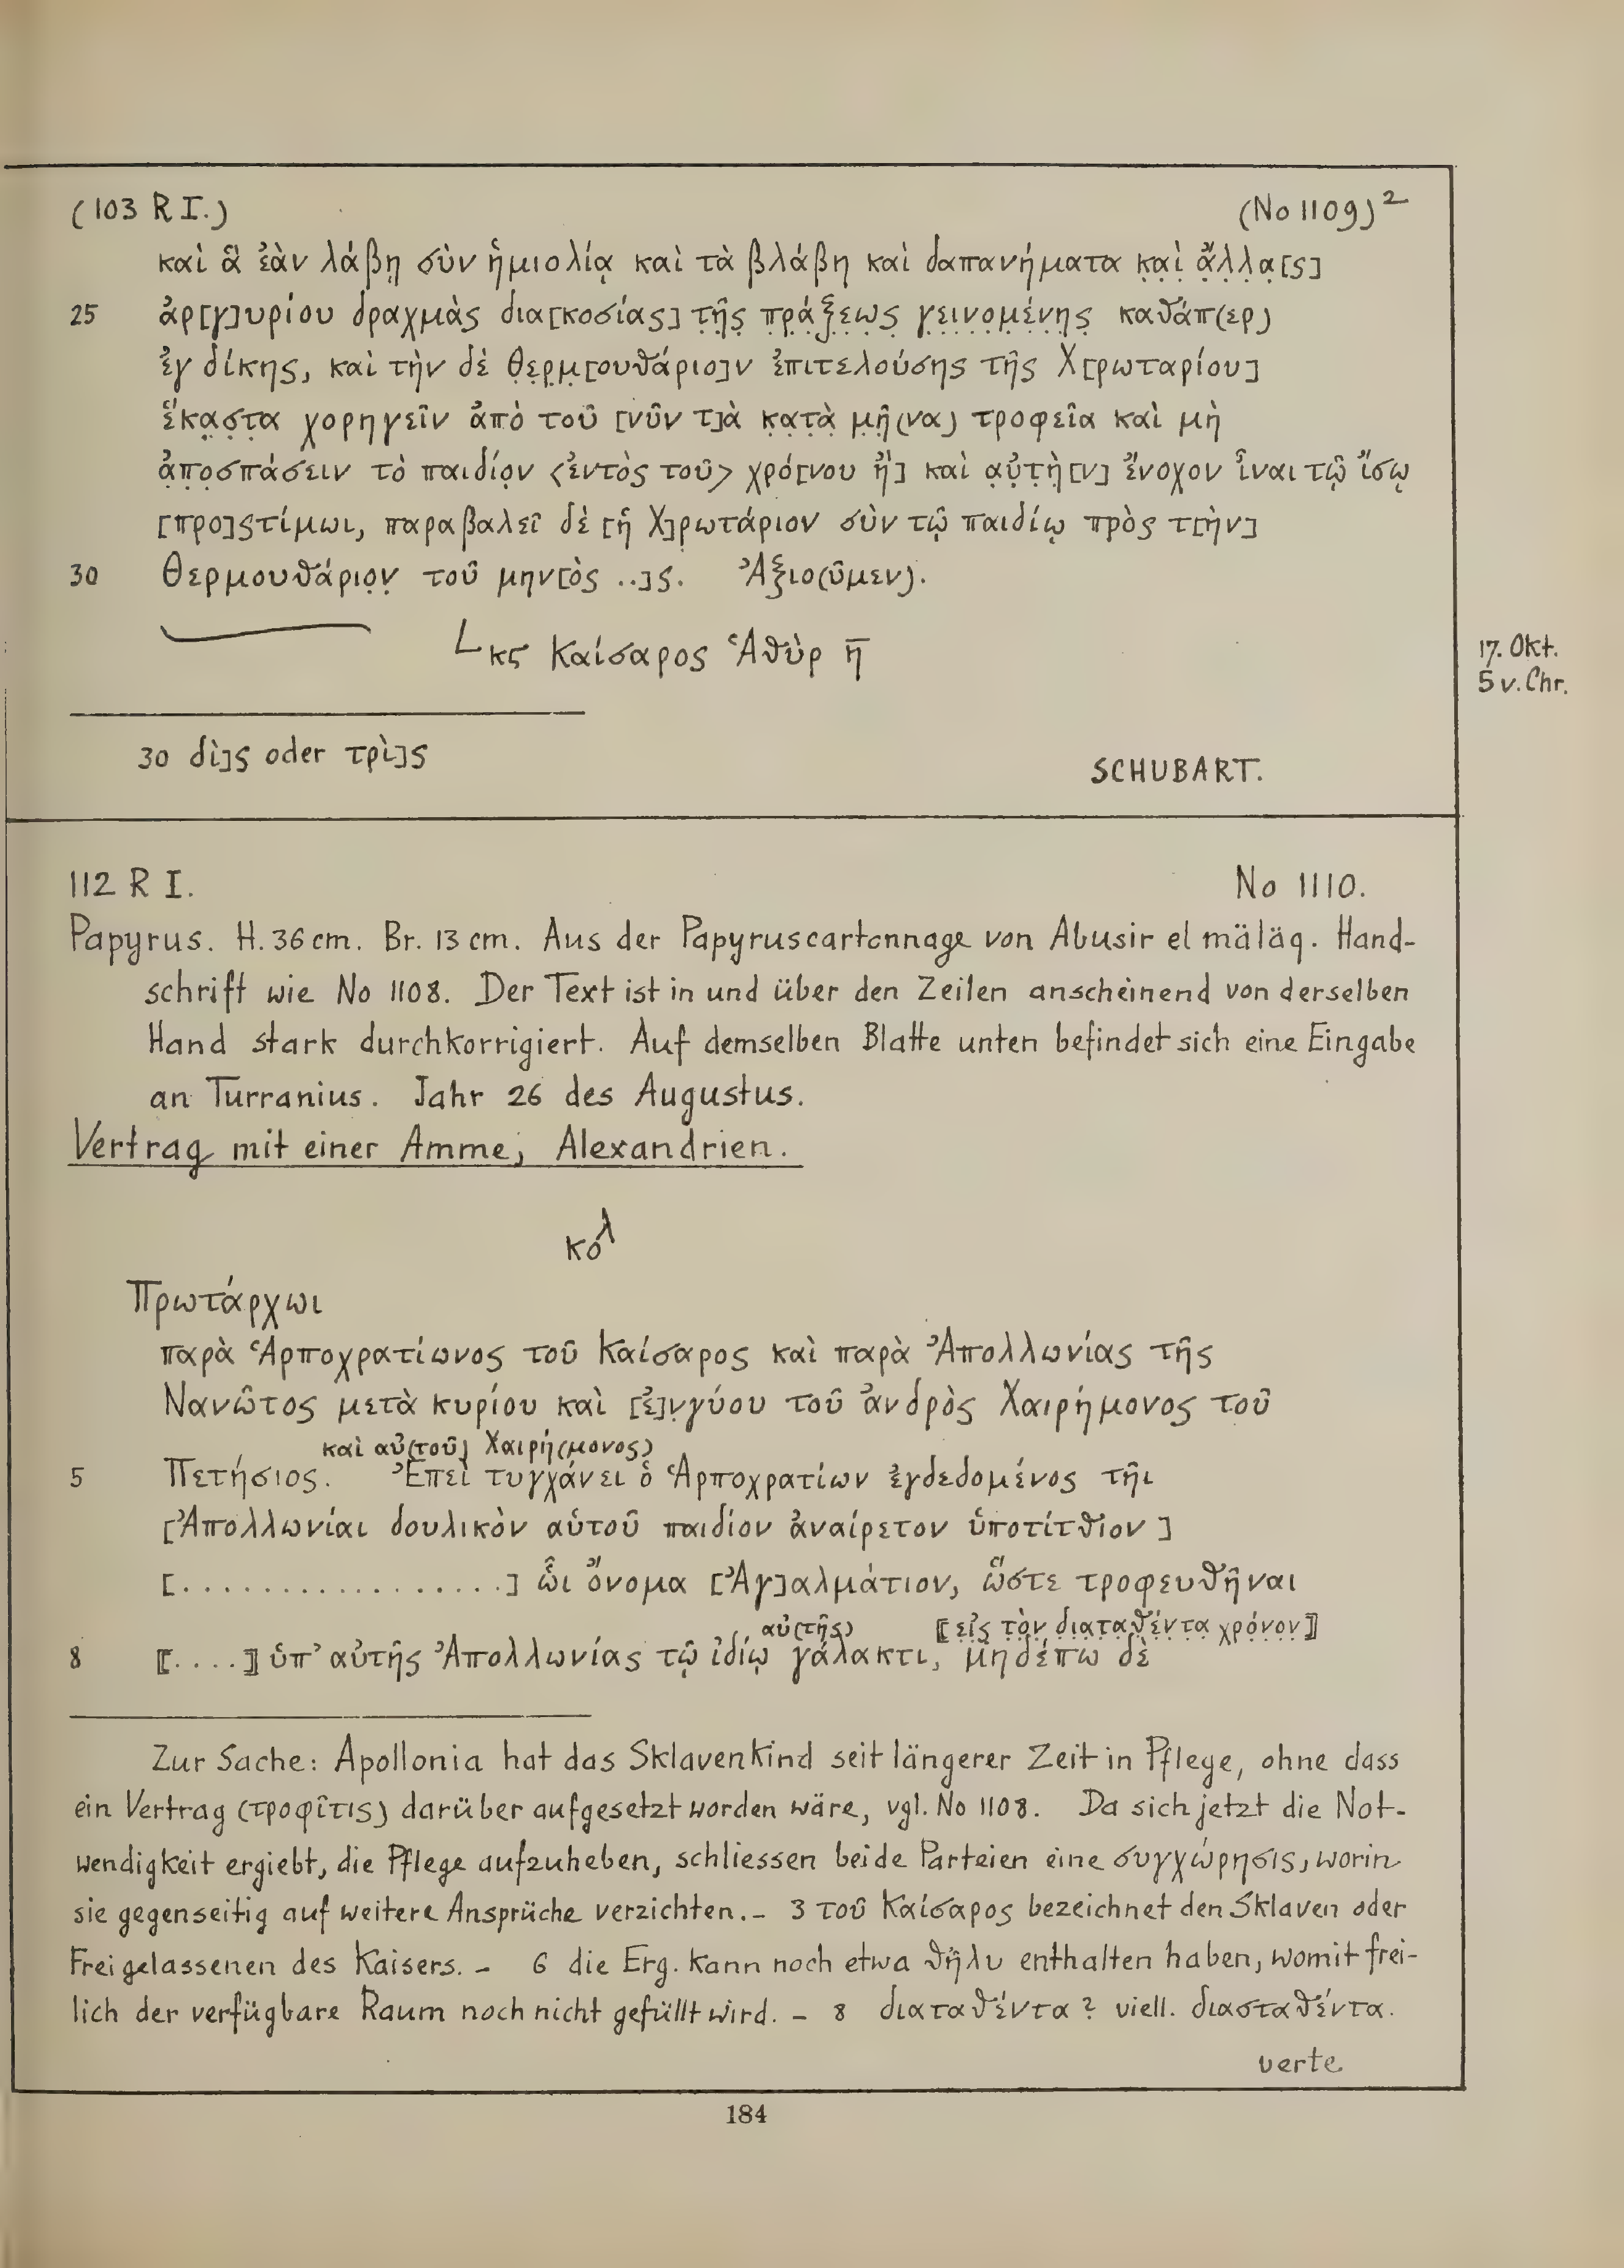 (103 R I.) (No 1109)²
καὶ ἃ ἐὰν λάβῃ σὺν ἡμιολίᾳ καὶ τὰ βλάβη καὶ δαπανήματα κ̣α̣ὶ̣ ἄ̣λ̣λ̣α̣[ς]
25 ἀρ[γ]υρίου δραχμὰς δια[κοσίας] τ̣ῆ̣ς̣ π̣ρ̣ά̣ξ̣ε̣ω̣ς̣ γ̣ε̣ι̣ν̣ο̣μ̣έ̣ν̣η̣ς̣ καθάπ(ερ)
ἐγ δίκης, καὶ τὴν δὲ Θ̣ε̣ρ̣μ̣[ουθάριο]ν ἐπιτελούσης τῆς Χ[ρωταρίου]
ἕκα̣σ̣τ̣α χορηγεῖν ἀπὸ τοῦ [νῦν τ]ὰ κ̣α̣τ̣ὰ̣ μ̣ῆ̣(να) τροφεῖα καὶ μὴ
ἀ̣π̣ο̣σπάσειν τὸ παιδίο̣ν <ἐντὸς τοῦ> χρό[νου ἢ] καὶ α̣ὐ̣τ̣ὴ̣[ν] ἔνοχον ἶναι τῷ ἴσῳ
[προ]στίμωι, παραβαλεῖ δὲ [ἡ Χ]ρωτάριον σὺν τῷ παιδίῳ πρὸς τ[ὴν]
30 Θερμουθάριο̣ν̣ τοῦ μην[ὸς ..]ς. Ἀξιο(ῦμεν).
L κϛ Καίσαρος Ἁθὺρ η̅
17. Okt.
5 v. Chr.
30 δὶ]ς oder τρὶ]ς
SCHUBART.
112 R I. No 1110.
Papyrus. H. 36 cm. Br. 13 cm. Aus der Papyruscartonnage von Abusir el mäläq. Hand-
schrift wie No 1108. Der Text ist in und über den Zeilen anscheinend von derselben
Hand stark durchkorrigiert. Auf demselben Blatte unten befindet sich eine Eingabe
an Turranius. Jahr 26 des Augustus.
Vertrag mit einer Amme, Alexandrien.
κολ
Πρωτάρχωι
παρὰ Ἁρποχρατίωνος τοῦ Καίσαρος καὶ παρὰ Ἀπολλωνίας τῆς
Νανῶτος μετὰ κυρίου καὶ [ἐ]ν̣γύου τοῦ ἀνδρὸς Χαιρήμονος τοῦ
καὶ αὐ(τοῦ) Χαιρή(μονος)
5 Πετήσιος. Ἐπεὶ τυγχάνει ὁ Ἁρποχρατίων ἐγδεδομένος τῆι
[Ἀπολλωνίαι δουλικὸν αὑτοῦ παιδίον ἀναίρετον ὑποτίτθιον ]
[..................] ὧι ὄνομα [Ἀγ]αλμάτιον, ὥστε τροφευθῆναι
αὐ(τῆς) ⟦ε̣ἰ̣ς̣ τ̣ὸ̣ν̣ δ̣ι̣α̣τ̣α̣θ̣έ̣ν̣τ̣α̣ χ̣ρ̣ό̣ν̣ο̣ν̣⟧
8 ⟦....⟧ ὑπ’ αὐτῆς Ἀπολλωνίας τῷ ἰδίῳ γάλακτι, μηδέπω δὲ
Zur Sache: Apollonia hat das Sklavenkind seit längerer Zeit in Pflege, ohne dass
ein Vertrag (τροφῖτις) darüber aufgesetzt worden wäre, vgl. No 1108. Da sich jetzt die Not-
wendigkeit ergiebt, die Pflege aufzuheben, schliessen beide Parteien eine συγχώρησις, worin
sie gegenseitig auf weitere Ansprüche verzichten. – 3 τοῦ Καίσαρος bezeichnet den Sklaven oder
Freigelassenen des Kaisers. – 6 die Erg. kann noch etwa θῆλυ enthalten haben, womit frei-
lich der verfügbare Raum noch nicht gefüllt wird. – 8 διαταθέντα? viell. διασταθέντα.
verte
184